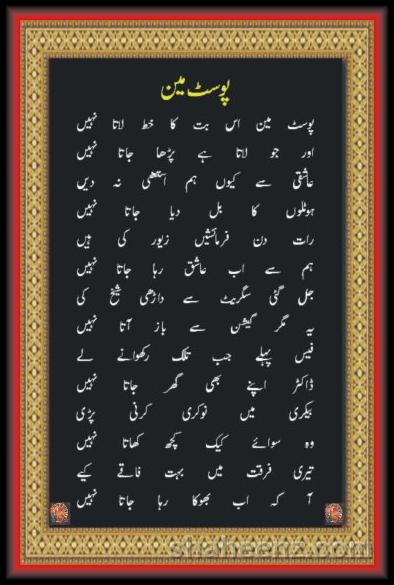 پوسٹ مین
پوسٹ مین اس بت کا خط لاتا نہیں
اور جو لاتا ہے پڑھا جاتا نہیں
عاشقی سے کیوں ہم استعفیٰ نہ دیں
ہوٹلوں کا بل دیا جاتا نہیں
رات دن فرمائشیں زیور کی ہیں
ہم سے اب عاشق رہا جاتا نہیں
جل گئی سگریٹ سے داڑھی شیخ کی
یہ مگر فیشن سے باز آتا نہیں
فیس پہلے جب تلک رکھوانے لے
ڈاکٹر اپنے بھی گھر جاتا نہیں
بیکری میں نوکری کرنی پڑی
وہ سوائے کیک کچھ کھاتا نہیں
تیری فرقت میں بہت فاقے کیے
آ کہ اب بھوکا رہا جاتا نہیں
shaheenz.com